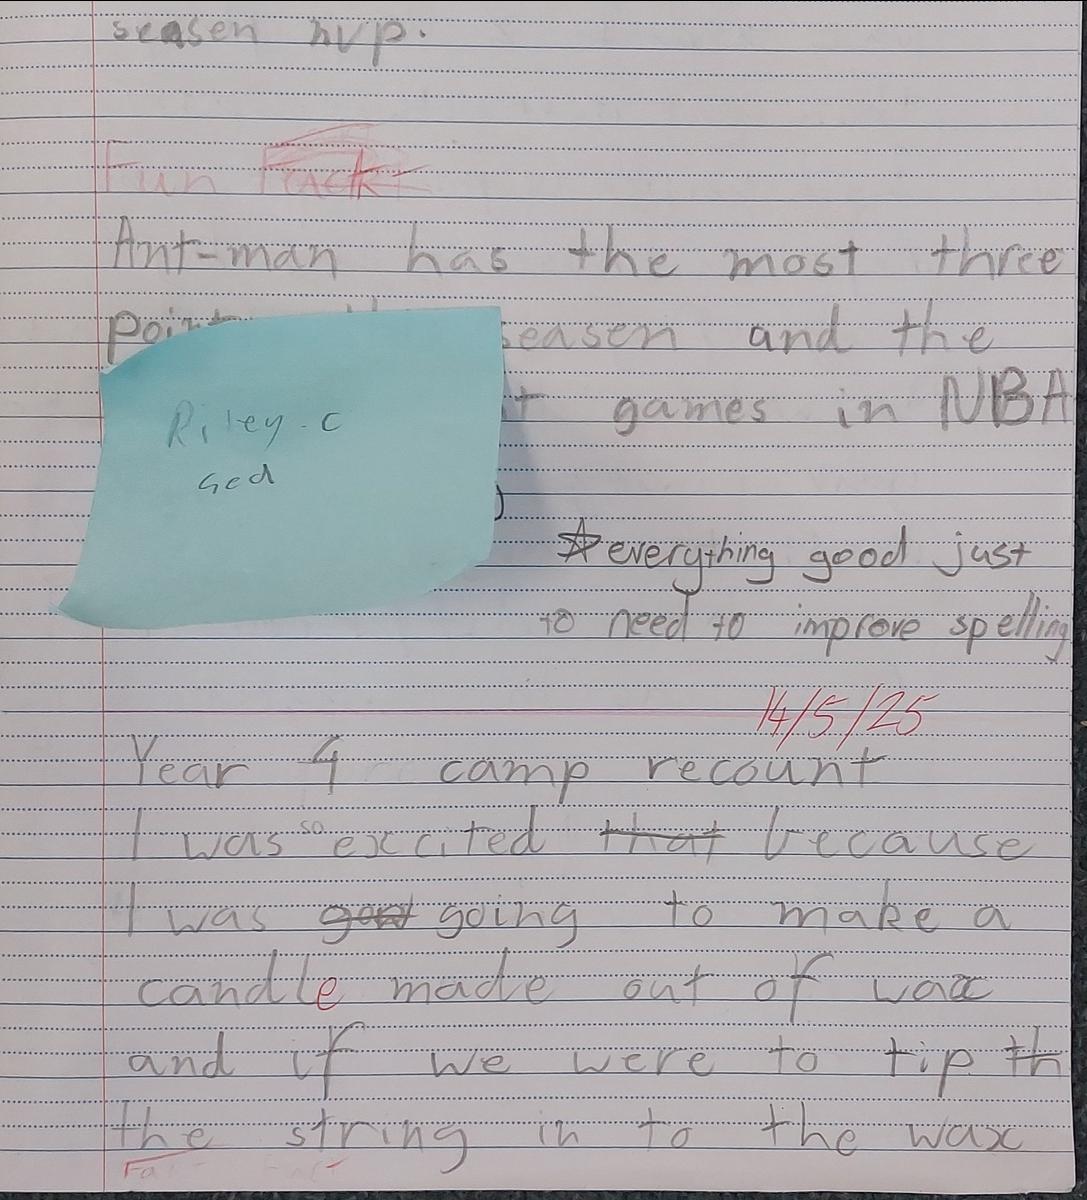 seasen mvp.
Fun
Ant-man has the most three
seasen and the
games in NBA
Riley.c
Ged
☆everything good just
to need to improve spelling
14/5/25
Year 4 camp recount
I was so excited that because
I was goat going to make a
candle made out of wax
and if we were to tip th
the string in to the wax